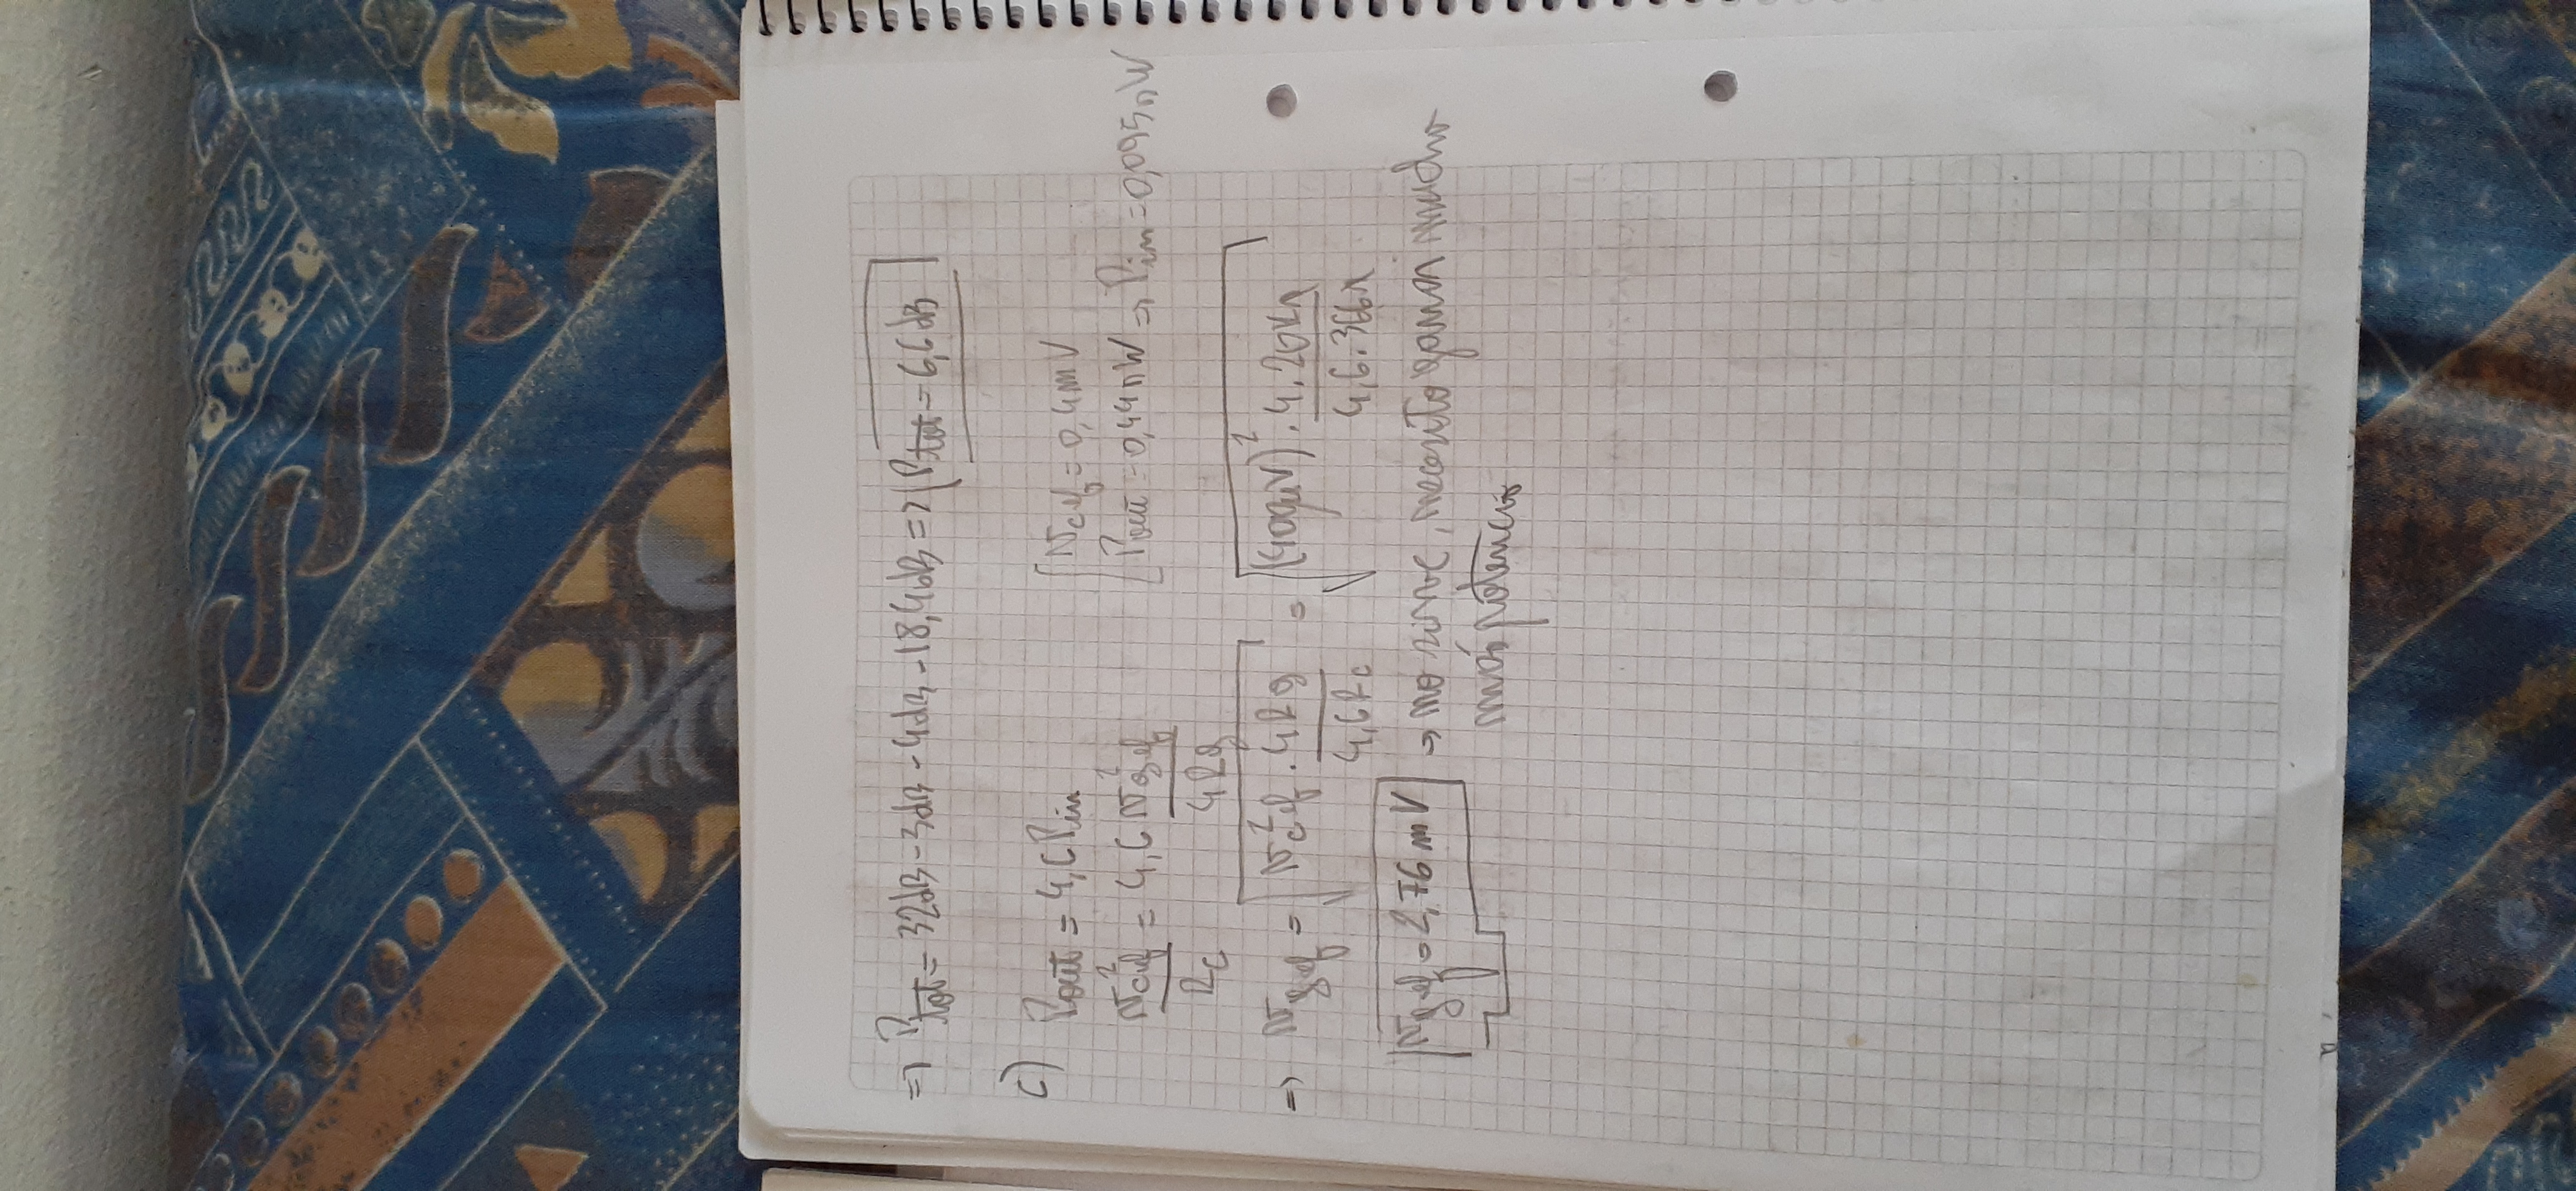 => Ptot = 32dB - 3dB - 4dB - 18,4dB => Ptot = 6,6dB
c) Pout = 4,6 Pin
Vcef = 0,4mV
Vcef² / Rc = 4,6 Vgef² / 4Rg
Pout = 0,44nW => Pin = 0,095nW
=> Vgef = √(Vcef² · 4Rg / 4,6Rc) = √((400µV)² · 4·20KΩ / 4,6·366Ω)
Vgef = 2,76mV -> no sirve, necesito ganar mucha
más potencia